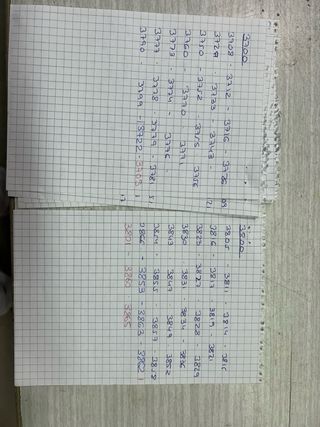 3700
3708 - 3712 - 3716 - 3726
3727 - 3733 - 3743 -
3750 - 3752 - 3755 - 3756
3760 - 3770 - 3771 -
3773 - 3774 - 3776 -
3777 - 3778 - 3779 - 3781
3790 3799 - 3722 - 3703
3800
3805 3811 - 3814 - 3815
3816 - 3817 - 3819 - 3821
3823 - 3827 - 3828 - 3829
3830 - 3831 - 3834 - 3836
3843 - 3847 - 3849 - 3852
3854 - 3855 - 3857 - 3858
3866 - 3853 - 3863 - 3862
3801 - 3860 - 3865